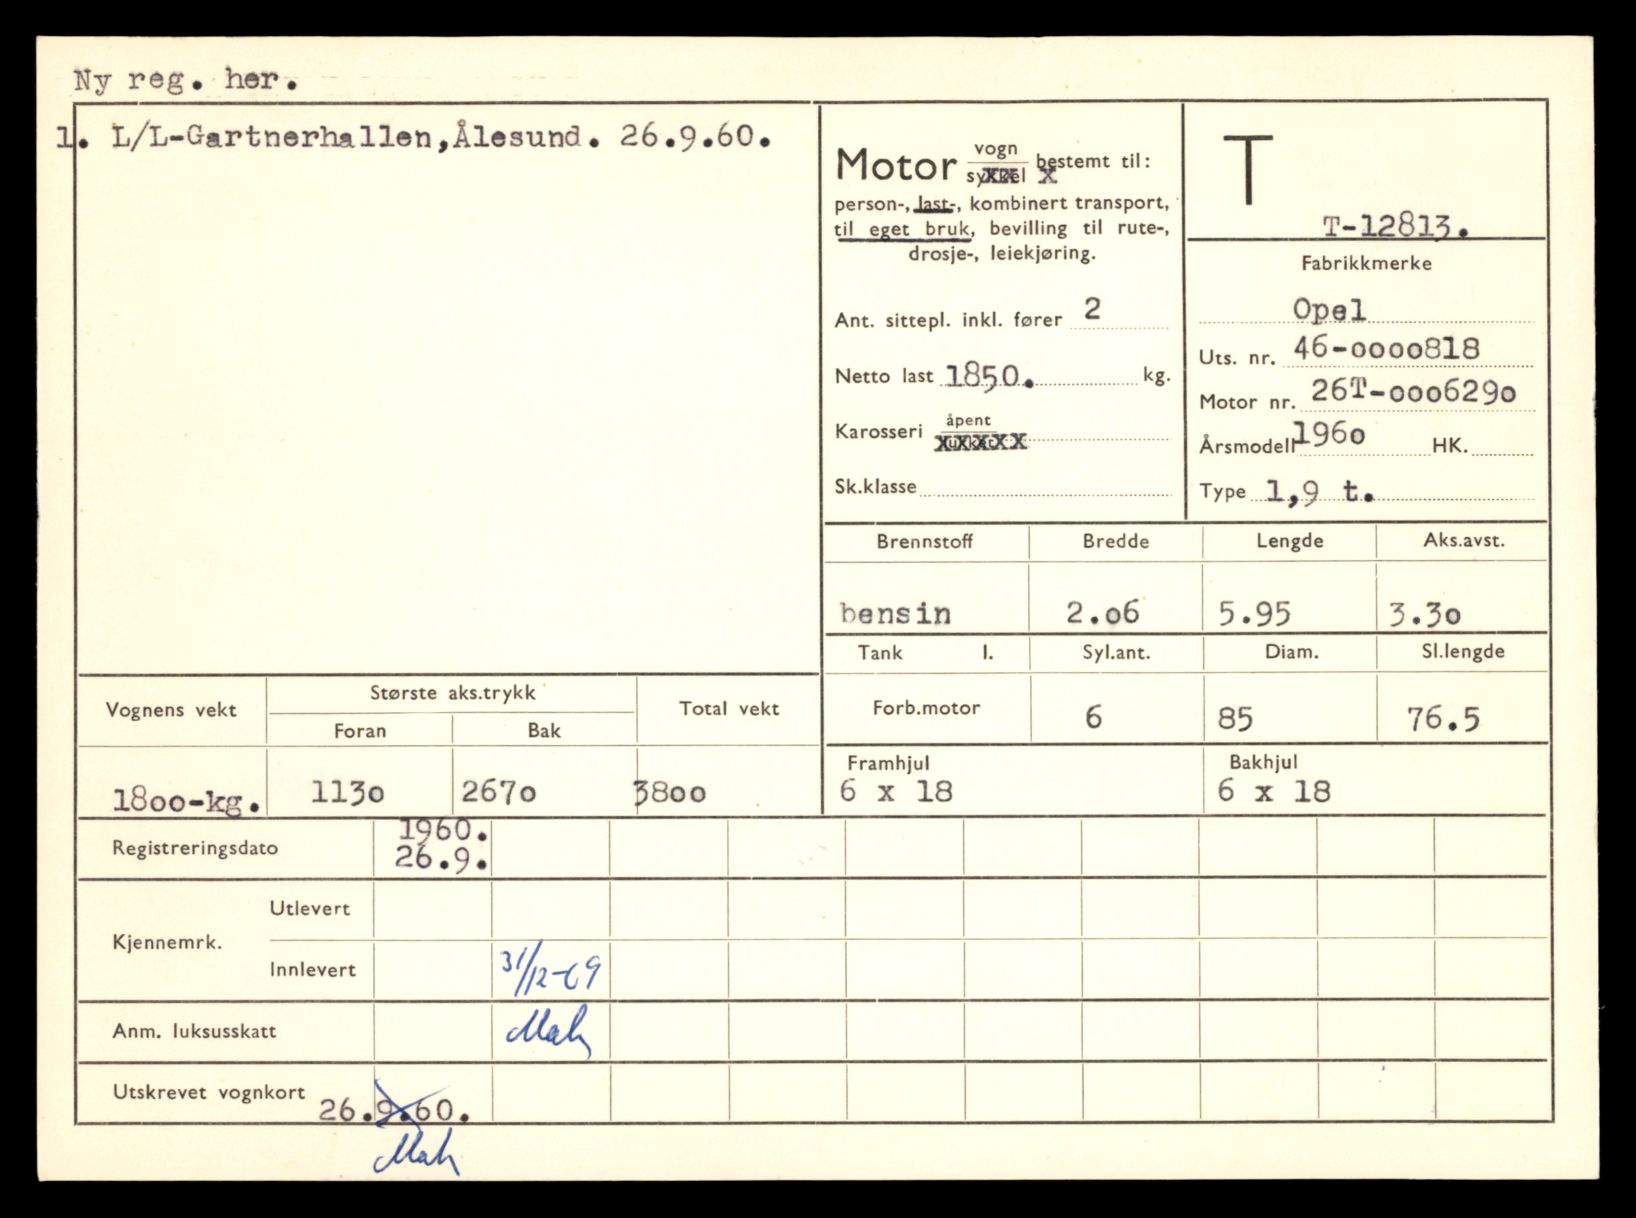 Ny reg. her.
1. L/L-Gartnerhallen,Ålesund. 26.9.60.
Motor vogn bestemt til:
sykkel
person-, last-, kombinert transport,
til eget bruk, bevilling til rute-,
drosje-, leiekjøring.
Ant. sittepl. inkl. fører 2
Netto last 1850. kg.
Karosseri åpent
lukket
Sk.klasse
T
T-12813.
Fabrikkmerke
Opel
Uts. nr. 46-0000818
Motor nr. 26T-0006290
Årsmodell 1960 HK.
Type 1,9 t.
Brennstoff Bredde Lengde Aks.avst.
bensin 2.06 5.95 3.30
Tank l. Syl.ant. Diam. Sl.lengde
Forb.motor 6 85 76.5
Framhjul Bakhjul
6 x 18 6 x 18
Vognens vekt Største aks.trykk Total vekt
Foran Bak
1800-kg. 1130 2670 3800
Registreringsdato 1960.
26.9.
Kjennemrk. Utlevert
Innlevert 31/12-69
Anm. luksusskatt Mah
Utskrevet vognkort 26.9.60.
Mah